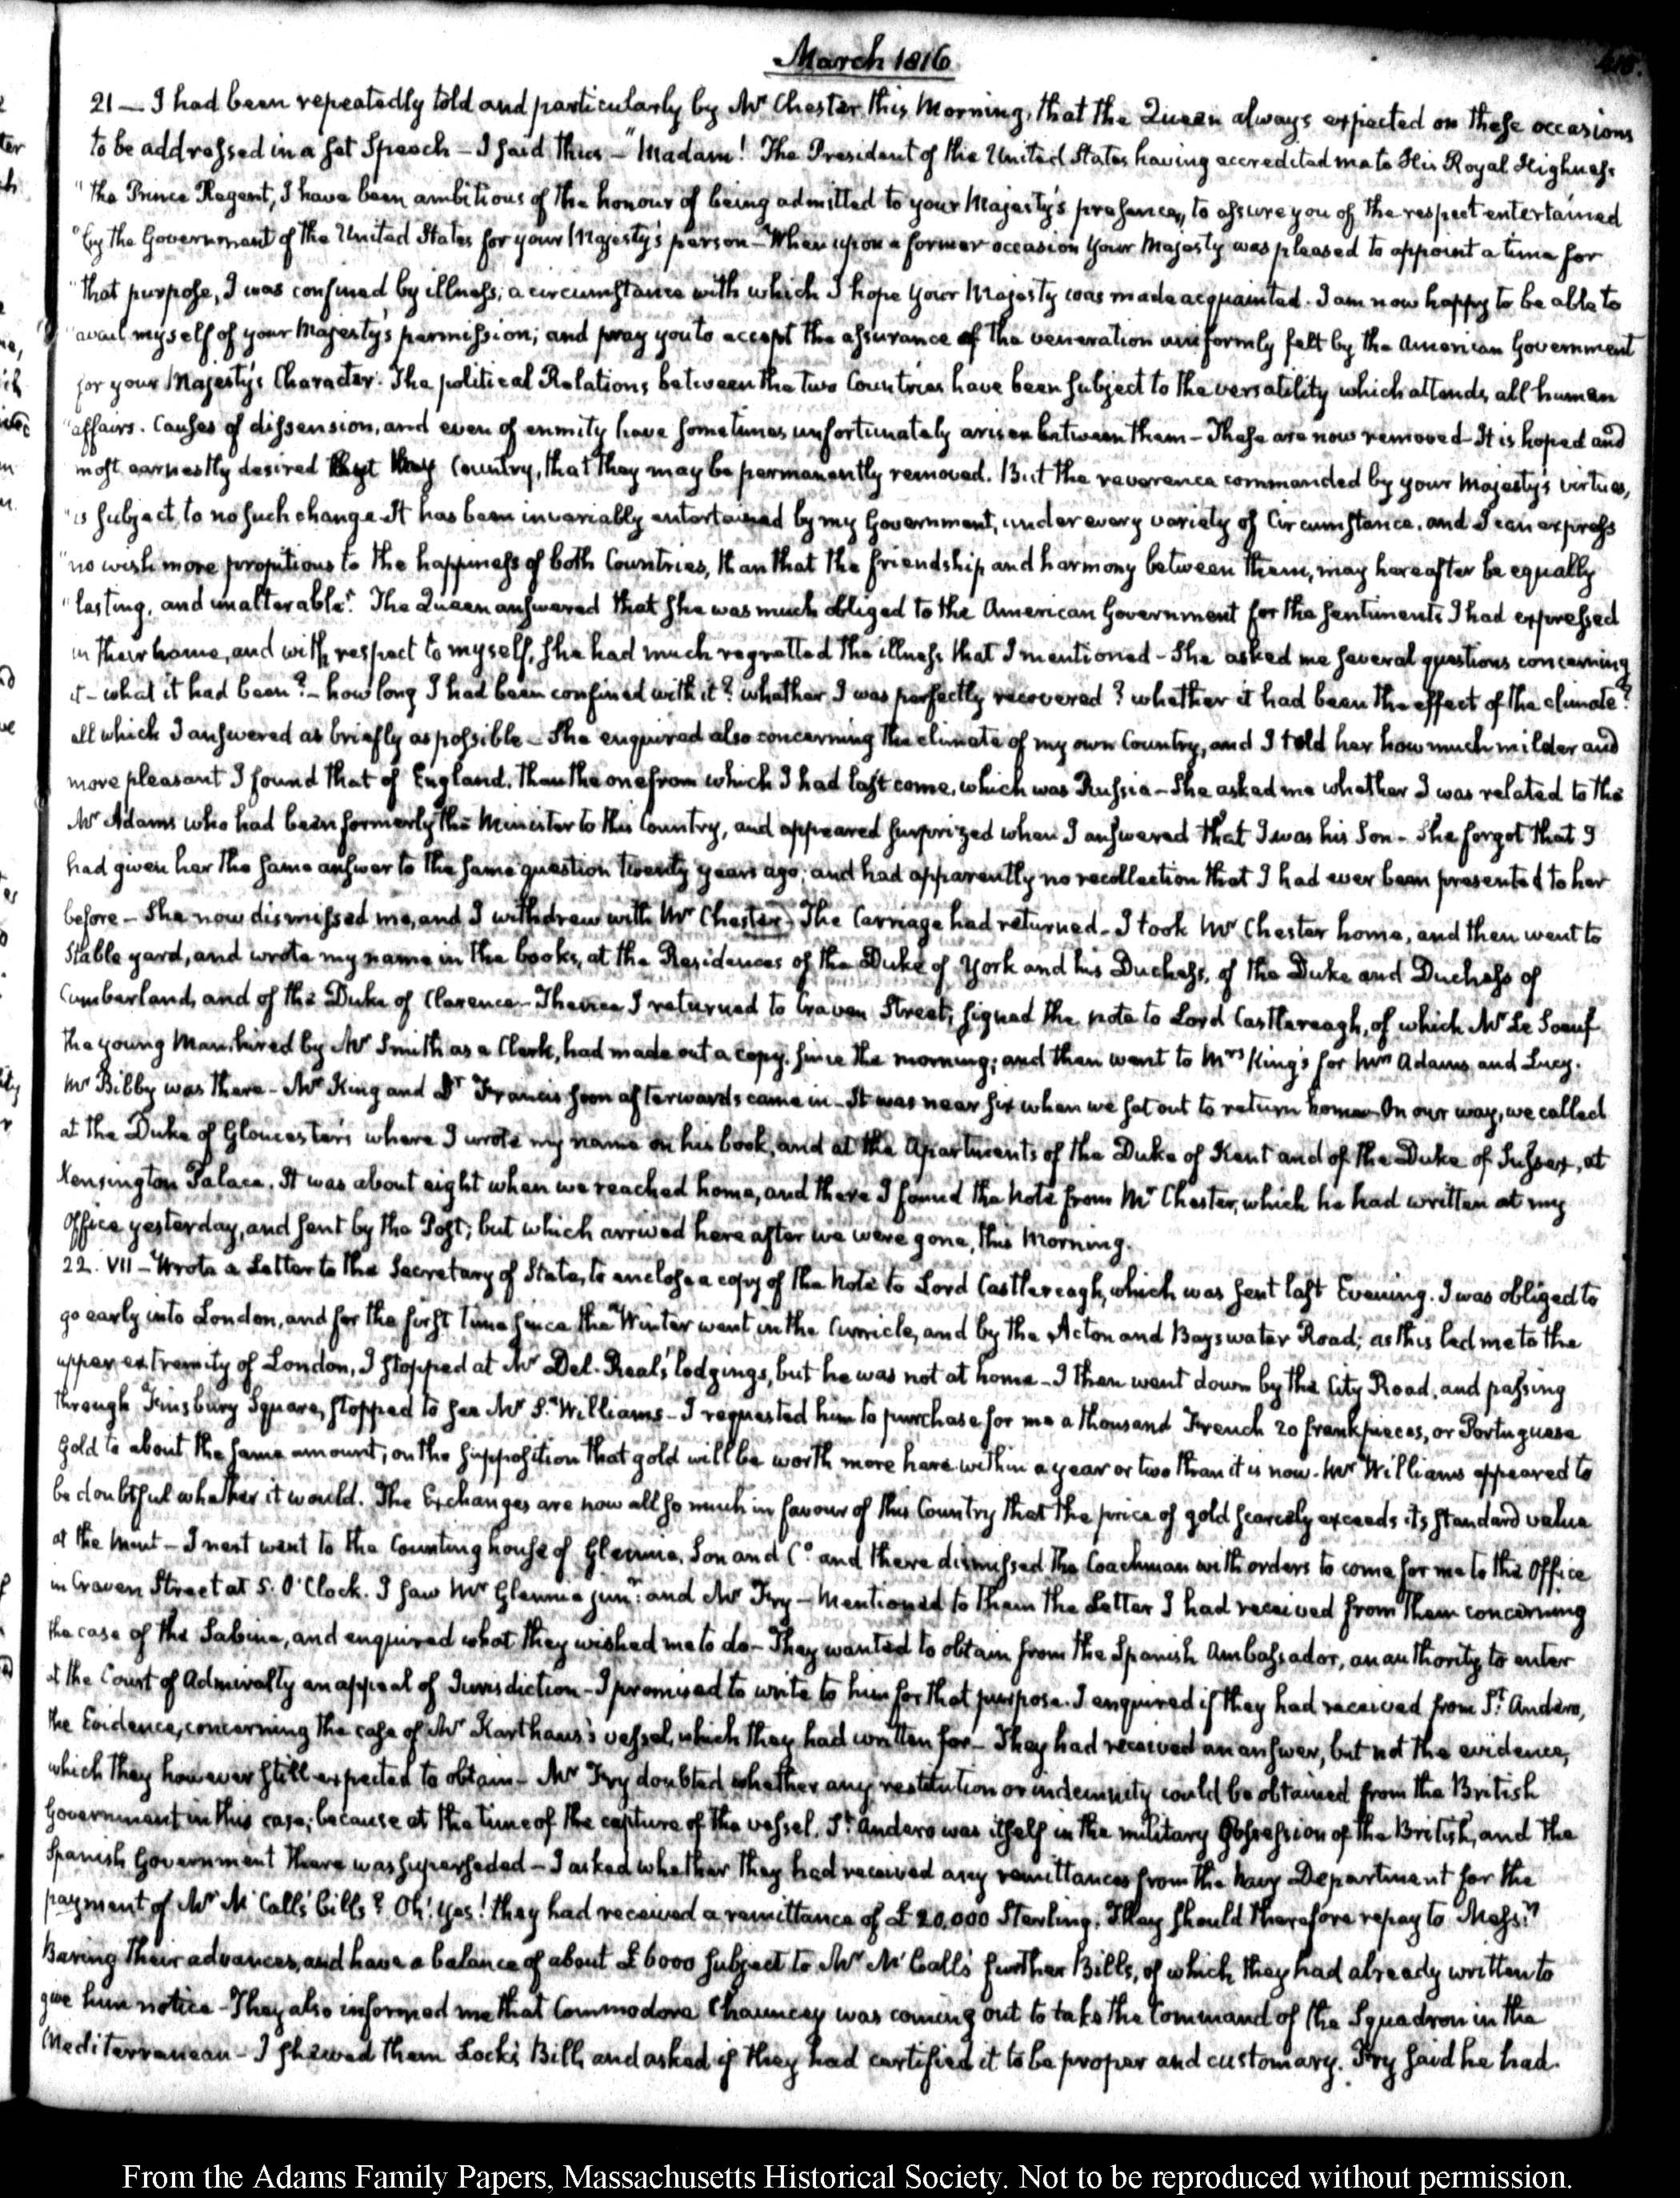 March 1816
21 — I had been repeatedly told and particularly by Mr. Chester this Morning, that the Queen always expected on these occasions
to be addressed in a set Speech — I said thus — "Madam! The President of the United States having accredited me to His Royal Highness
"the Prince Regent, I have been ambitious of the honour of being admitted to your Majesty's presence, to assure you of the respect entertained
"by the Government of the United States for your Majesty's person — When upon a former occasion your Majesty was pleased to appoint a time for
"that purpose, I was confined by illness; a circumstance with which I hope your Majesty was made acquainted. I am now happy to be able to
"avail myself of your Majesty's permission; and pray you to accept the assurance of the veneration uniformly felt by the American Government
for your Majesty's Character. The political Relations between the two Countries have been subject to the versatility which attends all human
"affairs. Causes of dissension, and even of enmity have sometimes unfortunately arisen between them — These are now removed — It is hoped and
most earnestly desired Country, that they may be permanently removed. But the reverence commanded by your Majesty's virtues,
"is subject to no such change — It has been invariably entertained by my Government, under every variety of Circumstance, and I can express
"no wish more propitious to the happiness of both Countries, than that the friendship and harmony between them, may hereafter be equally
"lasting, and unalterable". The Queen answered that she was much obliged to the American Government for the sentiments I had expressed
in their name, and with respect to myself, she had much regretted the illness that I mentioned — She asked me several questions concerning
it — what it had been? — how long I had been confined with it? whether I was perfectly recovered? whether it had been the effect of the climate?
all which I answered as briefly as possible — She enquired also concerning the climate of my own Country, and I told her how much milder and
more pleasant I found that of England, than the one from which I had last come, which was Russia — She asked me whether I was related to the
Mr. Adams who had been formerly the Minister to this Country, and appeared surprized when I answered that I was his Son — She forgot that I
had given her the same answer to the same question twenty years ago; and had apparently no recollection that I had ever been presented to her
before — She now dismissed me, and I withdrew with Mr. Chester — The Carriage had returned — I took Mr. Chester home, and then went to
Stable yard, and wrote my name in the books, at the Residences of the Duke of York and his Duchess, of the Duke and Duchess of
Cumberland, and of the Duke of Clarence — Thence I returned to Craven Street; signed the note to Lord Castlereagh, of which Mr. Le Soeuf
the young Man, hired by Mr. Smith as a Clerk, had made out a copy, since the morning; and then went to Mrs. King's for Mrs. Adams and Lucy.
Mr. Bibby was there — Mr. King and Dr. Francis soon afterwards came in — It was near six when we set out to return home — On our way, we called
at the Duke of Gloucester's where I wrote my name on his book, and at the Apartments of the Duke of Kent and of the Duke of Sussex, at
Kensington Palace. It was about eight when we reached home, and there I found the Note from Mr. Chester, which he had written at my
Office yesterday, and sent by the Post; but which arrived here after we were gone, this Morning.
22. VII — Wrote a Letter to the Secretary of State, to enclose a copy of the Note to Lord Castlereagh, which was sent last Evening. I was obliged to
go early into London, and for the first time since the Winter went in the Curricle, and by the Acton and Bayswater Road; as this led me to the
upper extremity of London, I stopped at Mr. Del-Real's lodgings, but he was not at home — I then went down by the City Road, and passing
through Finsbury Square, stopped to see Mr. S. Williams — I requested him to purchase for me a thousand French 20 frank pieces, or Portuguese
Gold to about the same amount; on the supposition that gold will be worth more here within a year or two than it is now. Mr. Williams appeared to
be doubtful whether it would. The Exchanges are now all so much in favour of this Country that the price of gold scarcely exceeds its standard value
at the Mint — I next went to the Counting house of Glennie, Son and Co. and there dismissed the Coachman with orders to come for me to the Office
in Craven Street at 5. O'Clock. I saw Mr. Glennie junr. and Mr. Fry — Mentioned to them the Letter I had received from them concerning
the case of the Sabine, and enquired what they wished me to do — They wanted to obtain from the Spanish Ambassador, an authority to enter
at the Court of Admiralty an appeal of Jurisdiction — I promised to write to him for that purpose. I enquired if they had received from St. Andero,
the Evidence, concerning the case of Mr. Karthaus's vessel, which they had written for — They had received an answer, but not the evidence,
which they however still expected to obtain — Mr. Fry doubted whether any restitution or indemnity could be obtained from the British
Government in this case; because at the time of the capture of the vessel, St. Andero was itself in the military possession of the British, and the
Spanish Government there was superseded — I asked whether they had received any remittances from the Navy Department for the
payment of Mr. McCall's bills? Oh! yes! they had received a remittance of £20,000 Sterling. They should therefore repay to Messrs.
Baring their advances, and have a balance of about £6000 subject to Mr. McCall's further Bills, of which they had already written to
give him notice — They also informed me that Commodore Chauncey was coming out to take the Command of the Squadron in the
Mediterranean — I shewed them Lock's Bill, and asked if they had certified it to be proper and customary. Fry said he had.
From the Adams Family Papers, Massachusetts Historical Society. Not to be reproduced without permission.